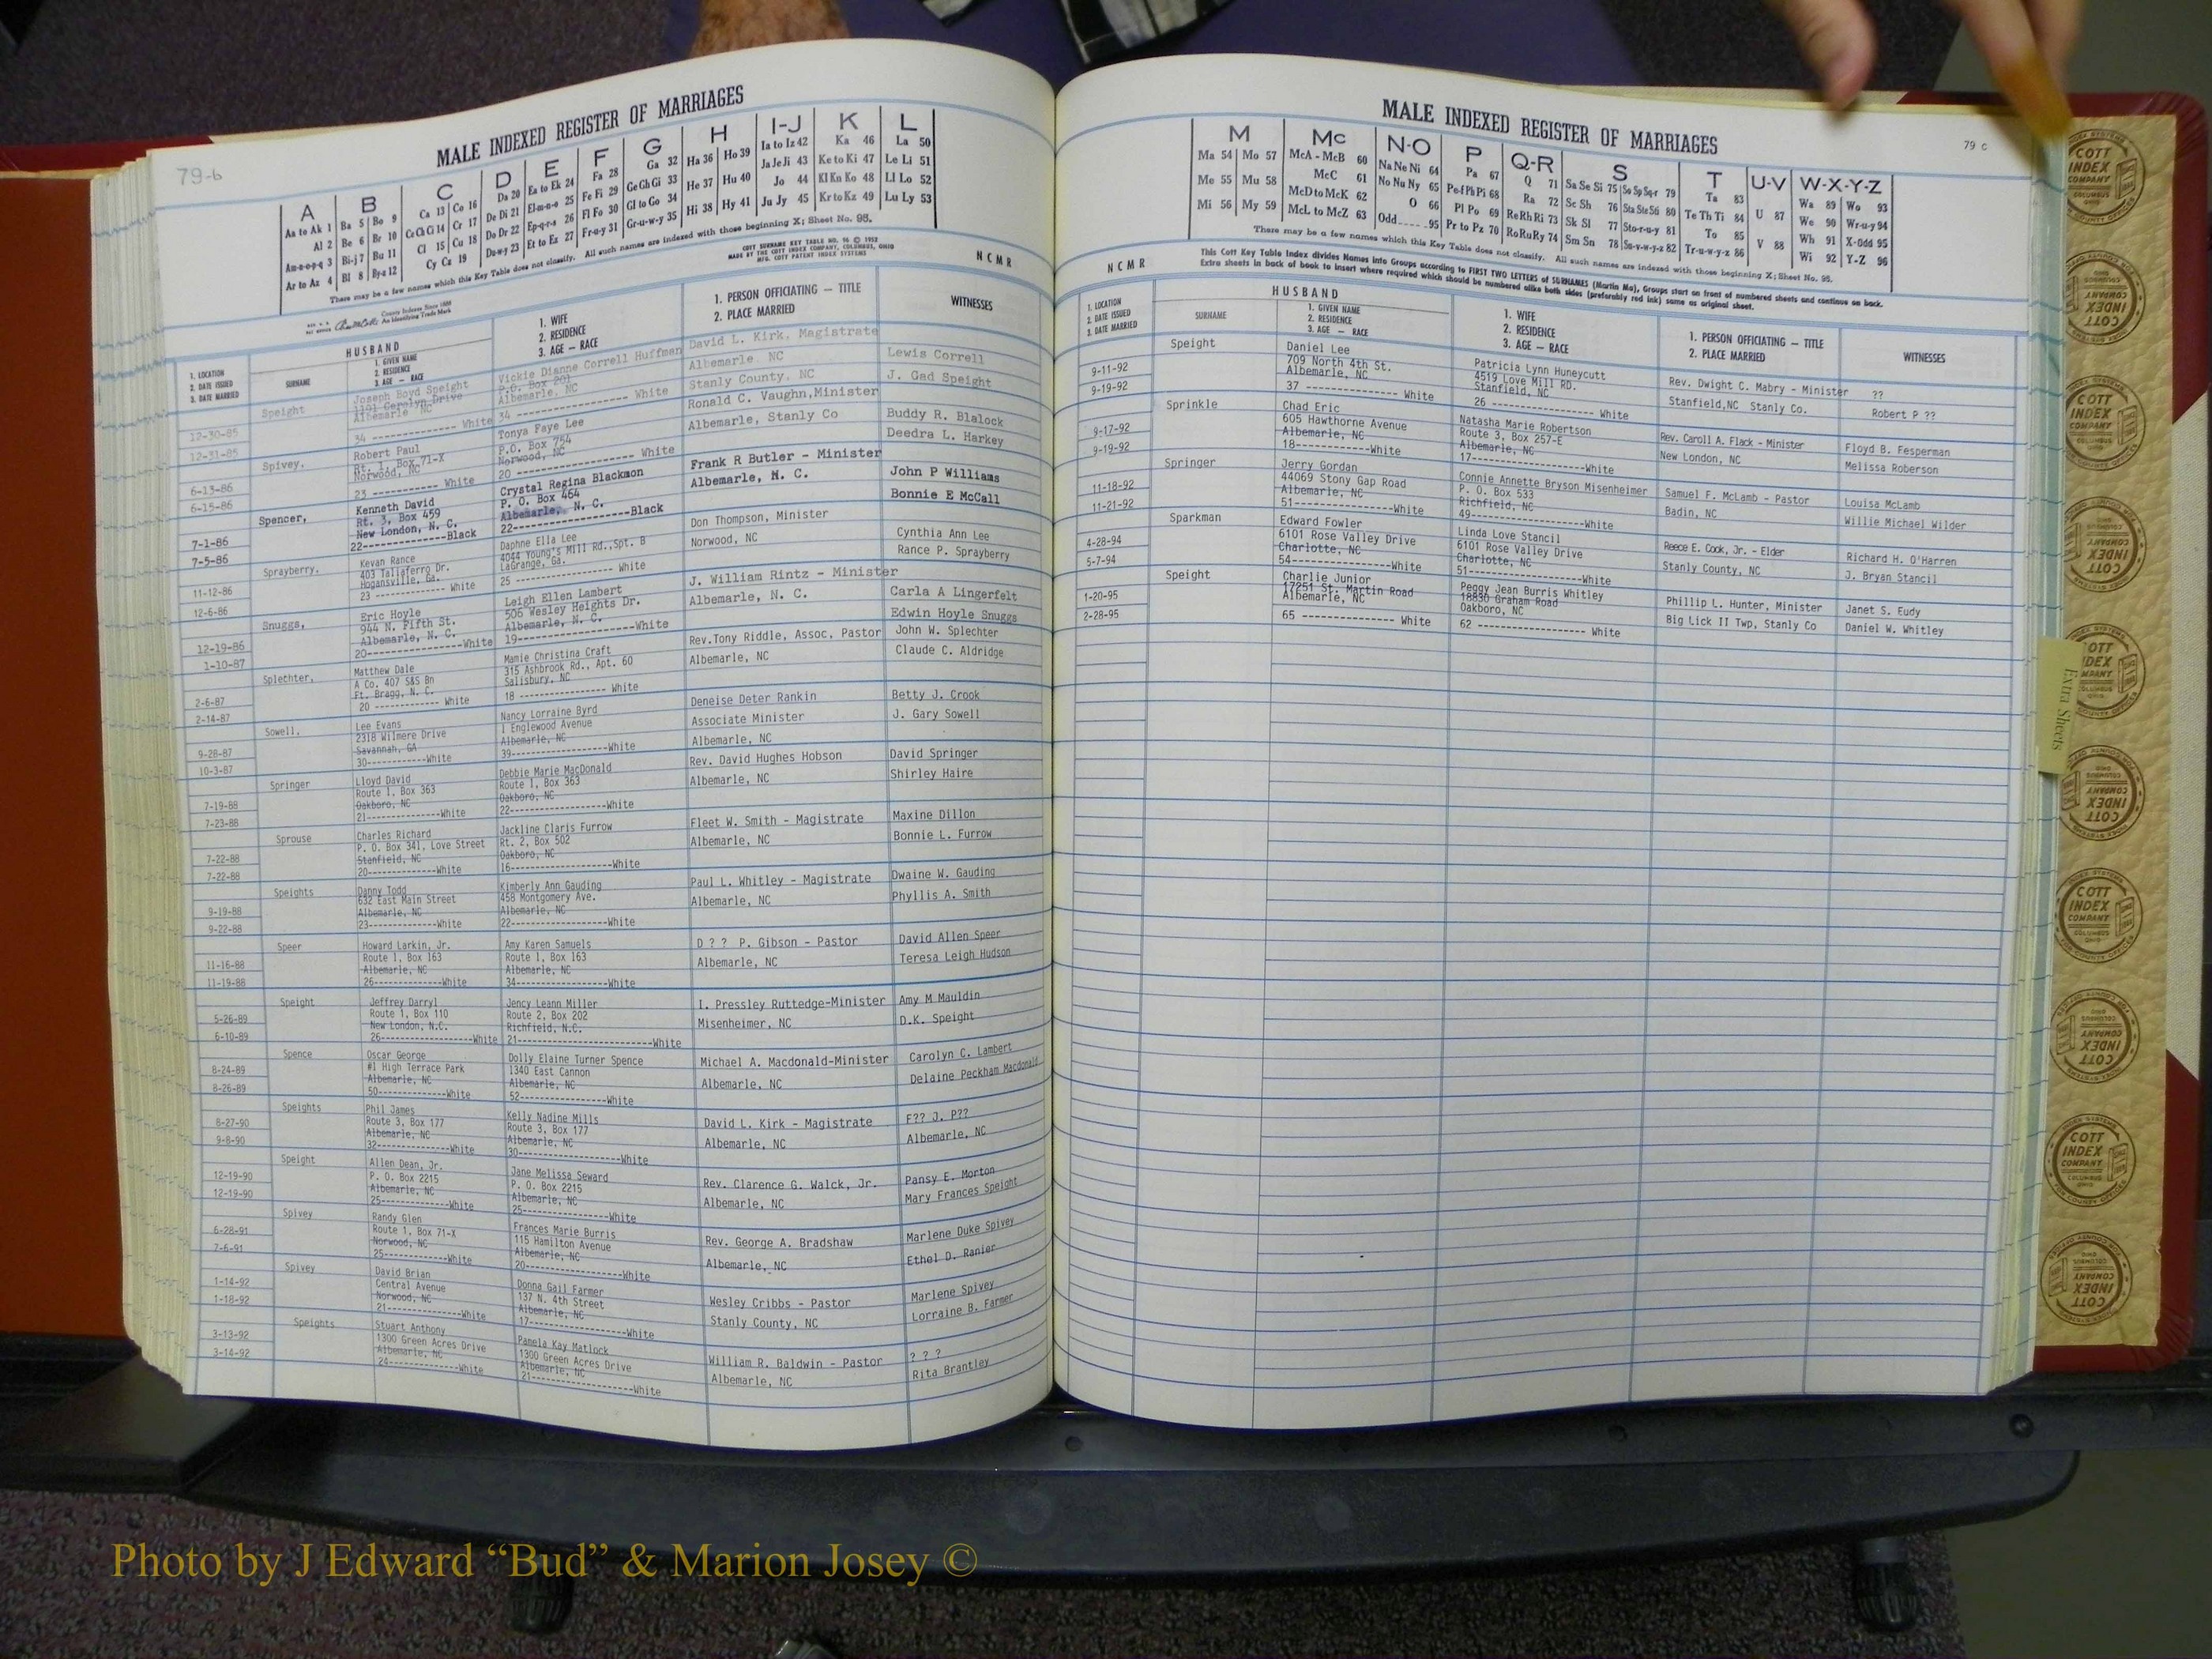 79-b
MALE INDEXED REGISTER OF MARRIAGES
A B C D E F G H I-J K L
Aa to Ak 1 Ba 5 Bo 9 Ca 13 Co 16 Da 20 Ea to Ek 24 Fa 28 Ga 32 Ha 36 Ho 39 Ia to Iz 42 Ka 46 La 50
Al 2 Be 6 Br 10 Ce Ch Ci 14 Cr 17 De Di 21 El-m-n-o 25 Fe Fi 29 Ge Gh Gi 33 He 37 Hu 40 Ja Je Ji 43 Ke to Ki 47 Le Li 51
Am-n-o-p-q 3 Bi-j 7 Bu 11 Cl 15 Cu 18 Do Dr 22 Ep-q-r-s 26 Fl Fo 30 Gl to Go 34 Hi 38 Hy 41 Jo 44 Kl Kn Ko 48 Ll Lo 52
Ar to Az 4 Bl 8 By-z 12 Cy Cz 19 Du-w-y 23 Et to Ez 27 Fr-u-y 31 Gr-u-w-y 35 Ju Jy 45 Kr to Kz 49 Lu Ly 53
There may be a few names which this Key Table does not classify. All such names are indexed with those beginning X; Sheet No. 95.
County Indexes Since 1888
An Identifying Trade Mark
COTT SURNAME KEY TABLE NO. 96 © 1952
MADE BY THE COTT INDEX COMPANY, COLUMBUS, OHIO
MFG. COTT PATENT INDEX SYSTEMS
NCMR
1. LOCATION
2. DATE ISSUED
3. DATE MARRIED
HUSBAND
SURNAME
1. GIVEN NAME
2. RESIDENCE
3. AGE — RACE
1. WIFE
2. RESIDENCE
3. AGE — RACE
1. PERSON OFFICIATING — TITLE
2. PLACE MARRIED
WITNESSES
Speight
12-30-85
12-31-85
Joseph Boyd Speight
1101 Carolyn Drive
Albemarle NC
34 ------------ White
Vickie Dianne Correll Huffman
P.O. Box 201
Albemarle, NC
34 ------------ White
David L. Kirk, Magistrate
Albemarle NC
Stanly County, NC
Lewis Correll
J. Gad Speight
Spivey,
6-13-86
6-15-86
Robert Paul
Rt. 1, Box 71-X
Norwood, NC
23 ------------ White
Tonya Faye Lee
P.O. Box 754
Norwood, NC
20 ------------ White
Ronald C. Vaughn,Minister
Albemarle, Stanly Co
Buddy R. Blalock
Deedra L. Harkey
Spencer,
7-1-86
7-5-86
Kenneth David
Rt. 3, Box 459
New London, N. C.
22--------------Black
Crystal Regina Blackmon
P. O. Box 464
Albemarle, N. C.
22--------------Black
Frank R Butler - Minister
Albemarle, N. C.
John P Williams
Bonnie E McCall
Sprayberry,
11-12-86
12-6-86
Kevan Rance
403 Tallaferro Dr.
Hogansville, Ga.
23 ------------ White
Daphne Ella Lee
4044 Young's Mill Rd.,Spt. B
LaGrange, Ga.
25 ------------ White
Don Thompson, Minister
Norwood, NC
Cynthia Ann Lee
Rance P. Sprayberry
Snuggs,
12-19-86
1-10-87
Eric Hoyle
944 N. Fifth St.
Albemarle, N. C.
20--------------White
Leigh Ellen Lambert
506 Wesley Heights Dr.
Albemarle, N. C.
19--------------White
J. William Rintz - Minister
Albemarle, N. C.
Carla A Lingerfelt
Edwin Hoyle Snuggs
Splechter,
2-6-87
2-14-87
Matthew Dale
A Co. 407 S&S Bn
Ft. Bragg, N. C.
20 ------------ White
Mamie Christina Craft
315 Ashbrook Rd., Apt. 60
Salisbury, NC
18 ------------ White
Rev.Tony Riddle, Assoc, Pastor
Albemarle, NC
John W. Splechter
Claude C. Aldridge
Sowell,
9-28-87
10-3-87
Lee Evans
2318 Wilmere Drive
Savannah, GA
30------------White
Nancy Lorraine Byrd
1 Englewood Avenue
Albemarle, NC
39------------White
Deneise Deter Rankin
Associate Minister
Albemarle, NC
Betty J. Crook
J. Gary Sowell
Springer
7-19-88
7-23-88
Lloyd David
Route 1, Box 363
Oakboro, NC
21------------White
Debbie Marie MacDonald
Route 1, Box 363
Oakboro, NC
22------------White
Rev. David Hughes Hobson
Albemarle, NC
David Springer
Shirley Haire
Sprouse
7-22-88
7-22-88
Charles Richard
P. O. Box 341, Love Street
Stanfield, NC
20------------White
Jackline Claris Furrow
Rt. 2, Box 502
Oakboro, NC
16------------White
Fleet W. Smith - Magistrate
Albemarle, NC
Maxine Dillon
Bonnie L. Furrow
Speights
9-19-88
9-22-88
Danny Todd
632 East Main Street
Albemarle, NC
23------------White
Kimberly Ann Gauding
458 Montgomery Ave.
Albemarle, NC
22------------White
Paul L. Whitley - Magistrate
Albemarle, NC
Dwaine W. Gauding
Phyllis A. Smith
Speer
11-16-88
11-19-88
Howard Larkin, Jr.
Route 1, Box 163
Albemarle, NC
26------------White
Amy Karen Samuels
Route 1, Box 163
Albemarle, NC
34------------White
D ? ? P. Gibson - Pastor
Albemarle, NC
David Allen Speer
Teresa Leigh Hudson
Speight
5-26-89
6-10-89
Jeffrey Darryl
Route 1, Box 110
New London, N.C.
26------------White
Jency Leann Miller
Route 2, Box 202
Richfield, N.C.
21------------White
I. Pressley Ruttedge-Minister
Misenheimer, NC
Amy M Mauldin
D.K. Speight
Spence
8-24-89
8-26-89
Oscar George
#1 High Terrace Park
Albemarle, NC
50------------White
Dolly Elaine Turner Spence
1340 East Cannon
Albemarle, NC
52------------White
Michael A. Macdonald-Minister
Albemarle, NC
Carolyn C. Lambert
Delaine Peckham Macdonald
Speights
8-27-90
9-8-90
Phil James
Route 3, Box 177
Albemarle, NC
32------------White
Kelly Nadine Mills
Route 3, Box 177
Albemarle, NC
30------------White
David L. Kirk - Magistrate
Albemarle, NC
F?? J. P??
Albemarle, NC
Speight
12-19-90
12-19-90
Allen Dean, Jr.
P. O. Box 2215
Albemarle, NC
25------------White
Jane Melissa Seward
P. O. Box 2215
Albemarle, NC
25------------White
Rev. Clarence G. Walck, Jr.
Albemarle, NC
Pansy E. Morton
Mary Frances Speight
Spivey
6-28-91
7-6-91
Randy Glen
Route 1, Box 71-X
Norwood, NC
25------------White
Frances Marie Burris
115 Hamilton Avenue
Albemarle, NC
20------------White
Rev. George A. Bradshaw
Albemarle, NC
Marlene Duke Spivey
Ethel D. Ranier
Spivey
1-14-92
1-18-92
David Brian
Central Avenue
Norwood, NC
21------------White
Donna Gail Farmer
137 N. 4th Street
Albemarle, NC
17------------White
Wesley Cribbs - Pastor
Stanly County, NC
Marlene Spivey
Lorraine B. Farmer
Speights
3-13-92
3-14-92
Stuart Anthony
1300 Green Acres Drive
Albemarle, NC
24------------White
Pamela Kay Matlock
1300 Green Acres Drive
Albemarle, NC
21------------White
William R. Baldwin - Pastor
Albemarle, NC
? ? ?
Rita Brantley
79 c
MALE INDEXED REGISTER OF MARRIAGES
M Mc N-O P Q-R S T U-V W-X-Y-Z
Ma 54 Mo 57 McA - McB 60 Na Ne Ni 64 Pa 67 Q 71 Sa Se Si 75 So Sp Sq-r 79 Ta 83 U 87 Wa 89 Wo 93
Me 55 Mu 58 McC 61 No Nu Ny 65 Pe-f Ph Pi 68 Ra 72 Sc Sh 76 Sta Ste Sti 80 Te Th Ti 84 V 88 We 90 Wr-u-y 94
Mi 56 My 59 McD to McK 62 O 66 Pl Po 69 Re Rh Ri 73 Sk Sl 77 Sto-r-u-y 81 To 85 Wh 91 X-Odd 95
McL to McZ 63 Odd 95 Pr to Pz 70 Ro Ru Ry 74 Sm Sn 78 Su-v-w-y-z 82 Tr-u-w-y-z 86 Wi 92 Y-Z 96
There may be a few names which this Key Table does not classify. All such names are indexed with those beginning X; Sheet No. 95.
This Cott Key Table Index divides Names into Groups according to FIRST TWO LETTERS of SURNAMES (Martin Ma), Groups start on front of numbered sheets and continue on back.
Extra sheets in back of book to insert where required which should be numbered alike both sides (preferably red ink) same as original sheet.
NCMR
1. LOCATION
2. DATE ISSUED
3. DATE MARRIED
HUSBAND
SURNAME
1. GIVEN NAME
2. RESIDENCE
3. AGE — RACE
1. WIFE
2. RESIDENCE
3. AGE — RACE
1. PERSON OFFICIATING — TITLE
2. PLACE MARRIED
WITNESSES
Speight
9-11-92
9-19-92
Daniel Lee
709 North 4th St.
Albemarle, NC
37 ---------------- White
Patricia Lynn Huneycutt
4519 Love Mill RD.
Stanfield, NC
26 ---------------- White
Rev. Dwight C. Mabry - Minister
Stanfield,NC Stanly Co.
??
Robert P ??
Sprinkle
9-17-92
9-19-92
Chad Eric
605 Hawthorne Avenue
Albemarle, NC
18--------------White
Natasha Marie Robertson
Route 3, Box 257-E
Albemarle, NC
17--------------White
Rev. Caroll A. Flack - Minister
New London, NC
Floyd B. Fesperman
Melissa Roberson
Springer
11-18-92
11-21-92
Jerry Gordan
44069 Stony Gap Road
Albemarle, NC
51--------------White
Connie Annette Bryson Misenheimer
P. O. Box 533
Richfield, NC
49--------------White
Samuel F. McLamb - Pastor
Badin, NC
Louisa McLamb
Willie Michael Wilder
Sparkman
4-28-94
5-7-94
Edward Fowler
6101 Rose Valley Drive
Charlotte, NC
54--------------White
Linda Love Stancil
6101 Rose Valley Drive
Charlotte, NC
51--------------White
Reece E. Cook, Jr. - Elder
Stanly County, NC
Richard H. O'Harren
J. Bryan Stancil
Speight
1-20-95
2-28-95
Charlie Junior
17251 St. Martin Road
Albemarle, NC
65 ---------------- White
Peggy Jean Burris Whitley
18830 Graham Road
Oakboro, NC
62 ---------------- White
Phillip L. Hunter, Minister
Big Lick II Twp, Stanly Co
Janet S. Eudy
Daniel W. Whitley
Extra Sheets
COTT INDEX COMPANY
COLUMBUS OHIO
Photo by J Edward “Bud” & Marion Josey ©